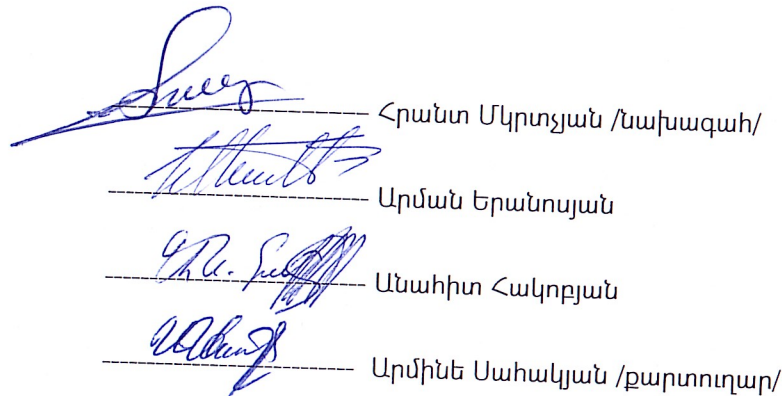 Հրանտ Մկրտչյան /նախագահ/
Արման Երանոսյան
Անահիտ Հակոբյան
Արմինե Սահակյան /քարտուղար/